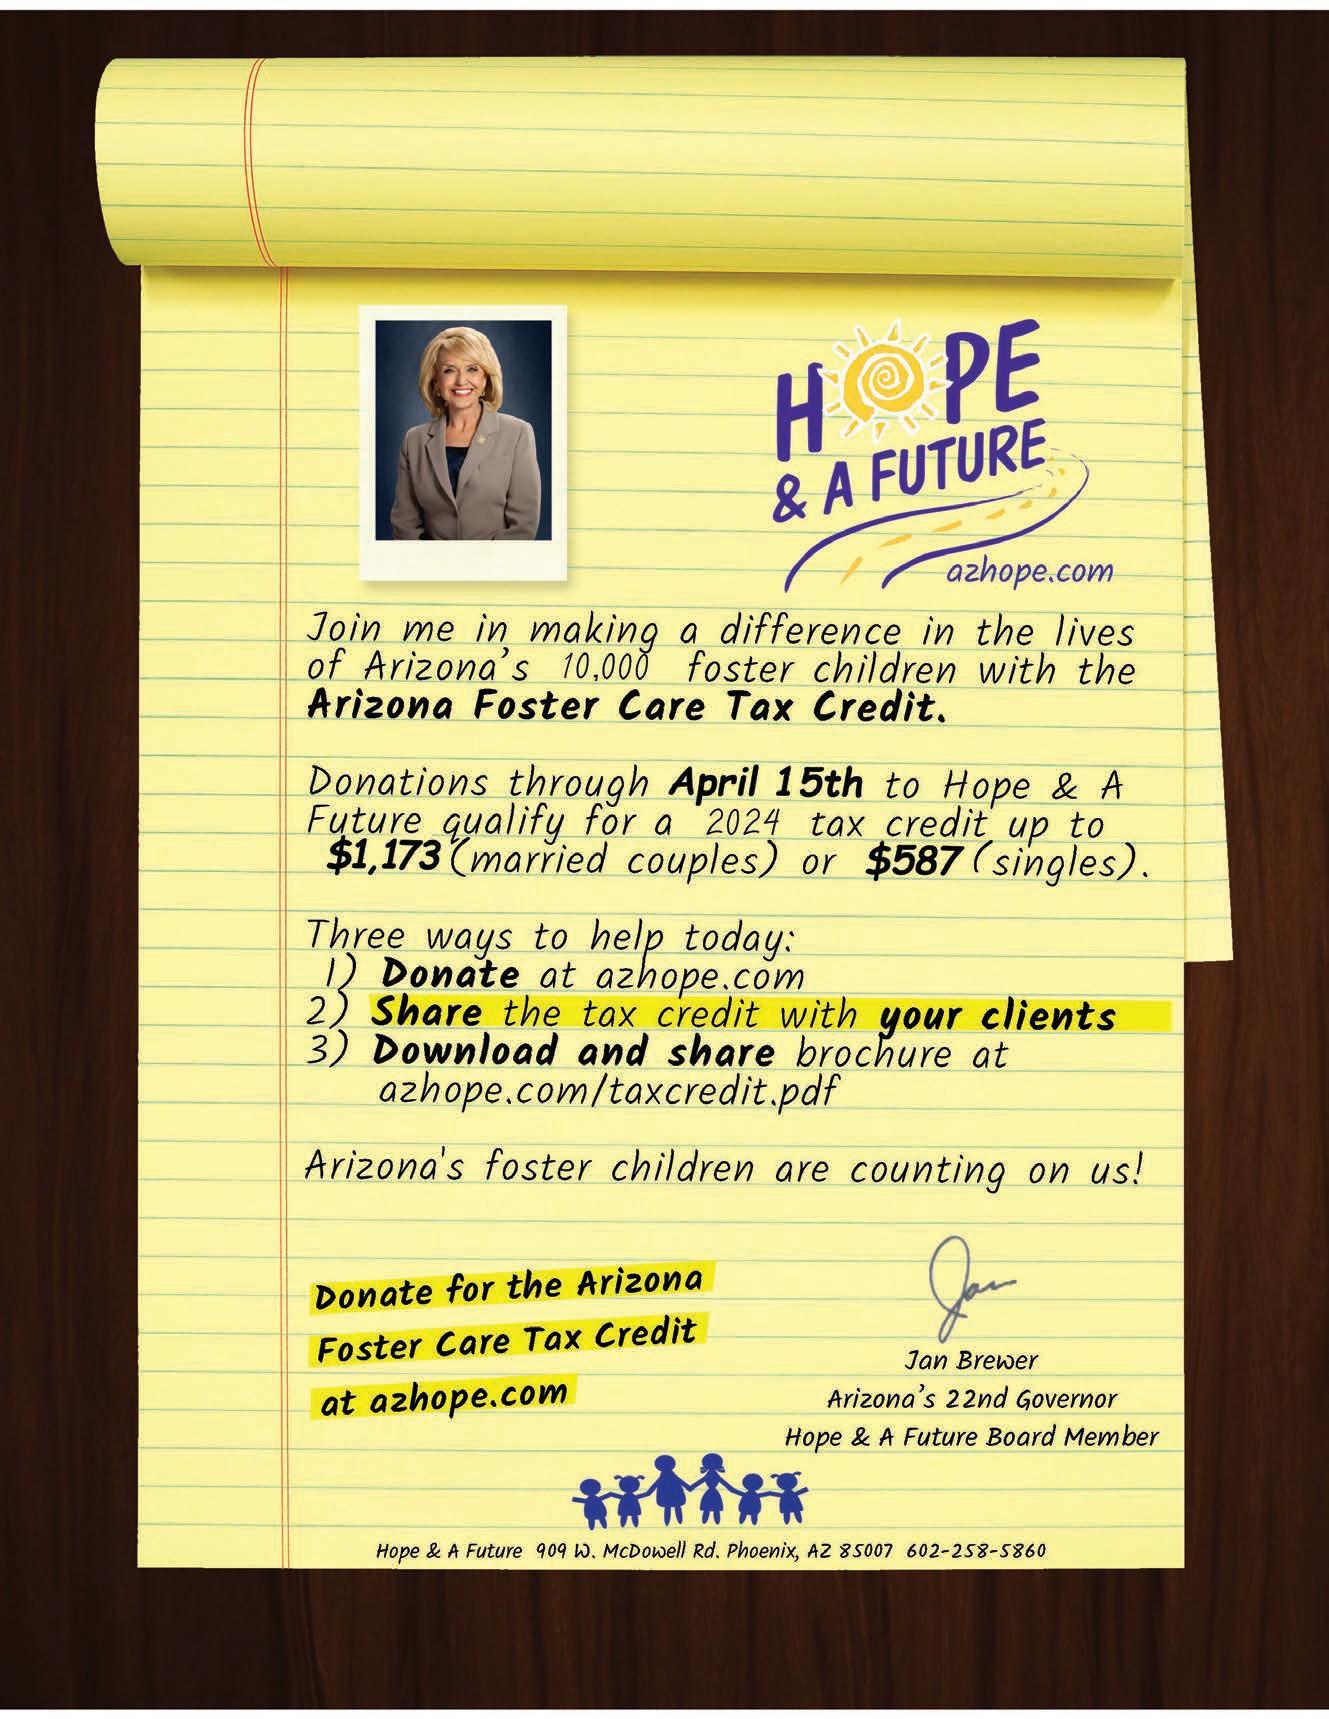 HOPE
& A FUTURE
azhope.com
Join me in making a difference in the lives
of Arizona's 10,000 foster children with the
Arizona Foster Care Tax Credit.
Donations through April 15th to Hope & A
Future qualify for a 2024 tax credit up to
$1,173 (married couples) or $587 (singles).
Three ways to help today:
1) Donate at azhope.com
2) Share the tax credit with your clients
3) Download and share brochure at
azhope.com/taxcredit.pdf
Arizona's foster children are counting on us!
Donate for the Arizona
Foster Care Tax Credit
at azhope.com
Jan
Jan Brewer
Arizona's 22nd Governor
Hope & A Future Board Member
Hope & A Future 909 W. McDowell Rd. Phoenix, AZ 85007 602-258-5860